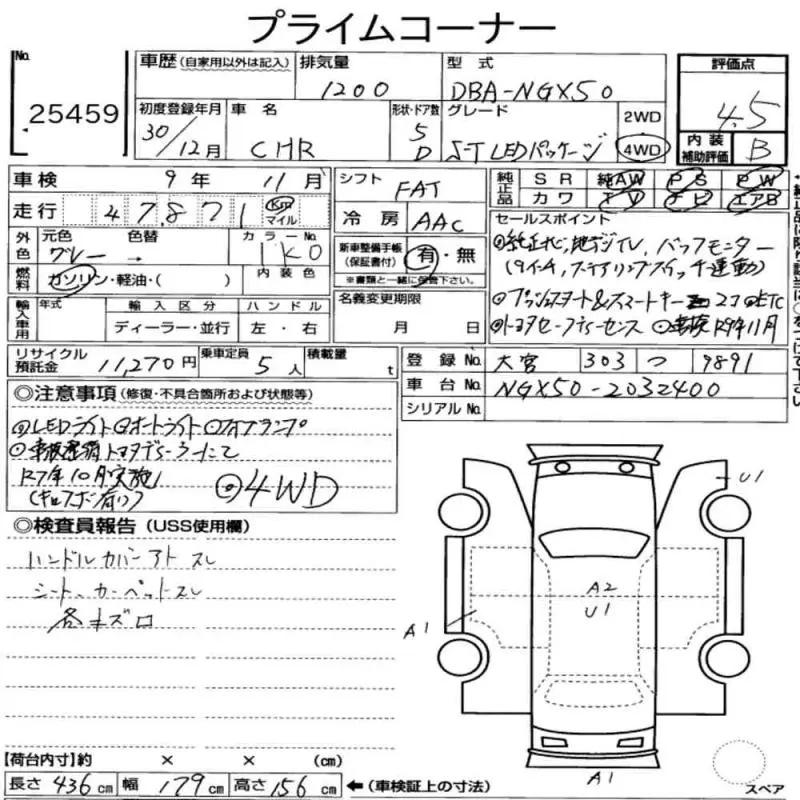 プライムコーナー
No. 25459
車歴 (自家用以外は記入) 排気量 1200 型式 DBA-NGX50 評価点 4.5
初度登録年月 30/12月 車名 CHR 形状・ドア数 5D グレード S-T LEDパッケージ 2WD 4WD 内装補助評価 B
車検 9年 11月 シフト FAT 純正品 SR 純AW PS PW
走行 47,871 km マイル 冷房 AAC カワ TV ナビ エアB
外色 元色 グレー 色替 → カラーNo. 1K0 新車整備手帳(保証書付) 有・無
※書類と一緒に保管下さい。
セールスポイント
◎純正ナビ,地デジTV,バックモニター
(9インチ,ステアリングスイッチ連動)
◎プッシュスタート&スマートキー 2コ ◎ETC
◎トヨタセーフティーセンス ◎車検R9年11月
燃料 ガソリン・軽油・( ) 内装色
名義変更期限 月 日
輸入車用 年式 輸入区分 ハンドル
ディーラー・並行 左・右
リサイクル預託金 11,270円 乗車定員 5人 積載量 t
登録No. 大宮 303 つ 9891
車台No. NGX50-2032400
シリアルNo.
◎注意事項 (修復・不具合箇所および状態等)
◎LEDライト ◎オートライト ◎フォグランプ
◎車検整備トヨタディーラーにて
R7年10月実施
◎4WD
◎検査員報告 (USS使用欄)
ハンドルカバーアト スレ
シート、カーペットスレ
各キズ
U1
A2
U1
A1
A1
スペア
【荷台内寸】約 × × (cm)
長さ 436cm 幅 179cm 高さ 156cm ←(車検証上の寸法)